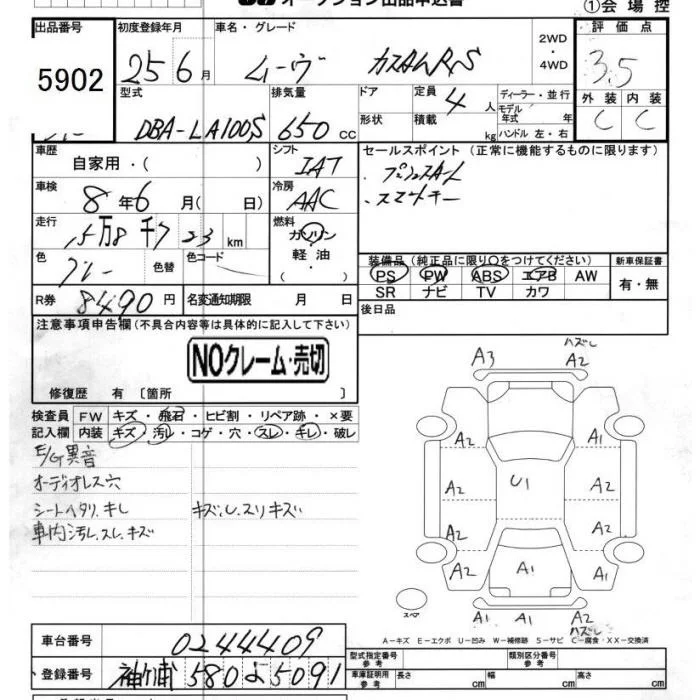 オークション出品申込書
①会場控
出品番号
5902
初度登録年月
25 6 月
車名・グレード
ムーヴ カスタムRS
2WD・4WD
評価点
3.5
外装 内装
C C
型式
DBA-LA100S
排気量
650 cc
ドア
形状
定員 4 人
積載 kg
ディーラー・並行
モデル年式 年
ハンドル 左・右
車歴
自家用・( )
シフト
IAT
セールスポイント (正常に機能するものに限ります)
・プッシュスタート
・スマートキー
車検
8 年 6 月( 日)
冷房
AAC
走行
km
燃料
ガソリン
軽油
・( )
色
グレー
色替
色コード
装備品 (純正品に限り○をつけてください)
PS PW ABS エアB AW
SR ナビ TV カワ
新車保証書
有・無
R券 8490 円
名変通知期限 月 日
後日品
注意事項申告欄 (不具合内容等は具体的に記入して下さい)
NOクレーム・売切
修復歴 有 〔箇所 〕
検査員記入欄
FW キズ・飛石・ヒビ割・リペア跡・×要
内装 キズ・汚レ・コゲ・穴・スレ・キレ・破レ
E/G異音
オーディオレス穴
シートヘタリ、キレ
キズ、U、スリキズ
車内汚レ、スレ、キズ
A3
ハズレ
A2
A2
A1
A2
U1
A2
A2
A2
A2
A1
A1
A1
A1
A2
ハズレ
スペア
A-キズ E-エクボ U-凹み W-補修跡 S-サビ C-腐食・XX-交換済
車台番号
0244409
登録番号
袖ヶ浦 580 よ 5091
型式指定番号 参考
類別区分番号 参考
車庫証明用 参考
長さ cm
幅 cm
高さ cm